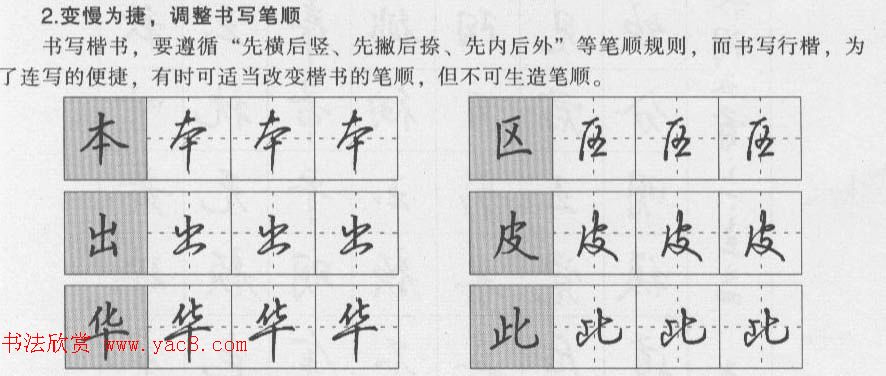 2.变慢为捷，调整书写笔顺
书写楷书，要遵循“先横后竖、先撇后捺、先内后外”等笔顺规则，而书写行楷，为
了连写的便捷，有时可适当改变楷书的笔顺，但不可生造笔顺。
本 本 本 本 区 区 区 区
出 出 出 出 皮 皮 皮 皮
华 华 华 华 此 此 此 此
书法欣赏 www.yac8.com